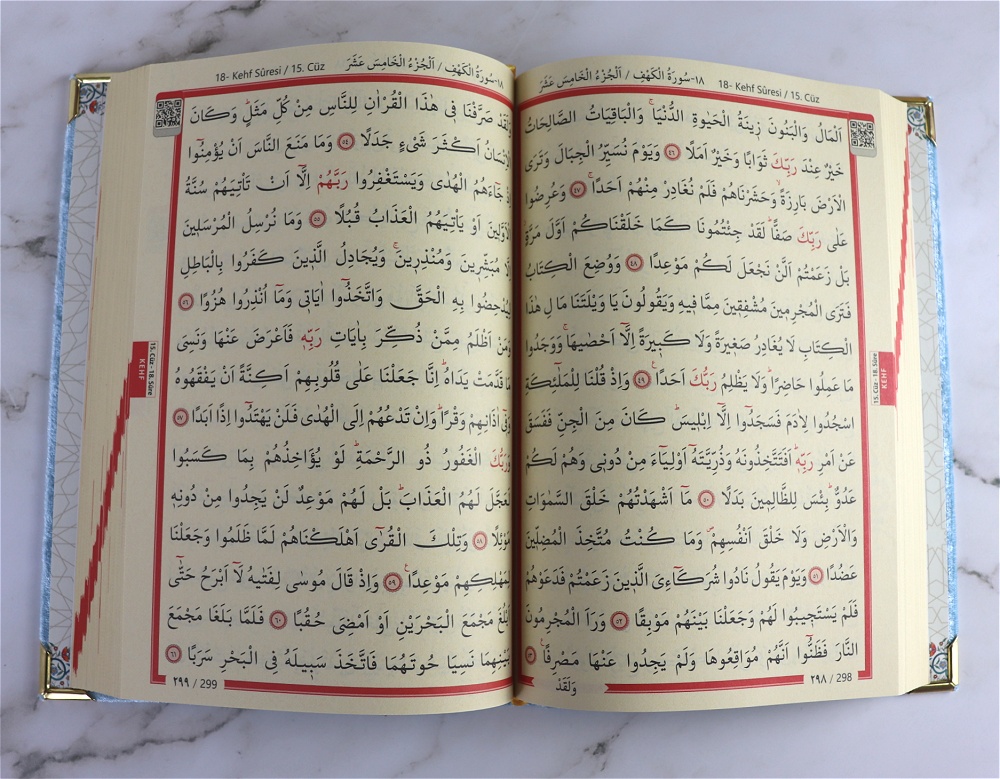 ١٨-سُورَةُ الْكَهْفِ / اَلْجُزْءُ الْخَامِسَ عَشَرَ 18- Kehf Sûresi / 15. Cüz
اَلْمَالُ وَالْبَنُونَ ز۪ينَةُ الْحَيٰوةِ الدُّنْيَاۚ وَالْبَاقِيَاتُ الصَّالِحَاتُ
خَيْرٌ عِنْدَ رَبِّكَ ثَوَابًا وَخَيْرٌ اَمَلًا ٤٦ وَيَوْمَ نُسَيِّرُ الْجِبَالَ وَتَرَى
الْاَرْضَ بَارِزَةًۙ وَحَشَرْنَاهُمْ فَلَمْ نُغَادِرْ مِنْهُمْ اَحَدًاۚ ٤٧ وَعُرِضُوا
عَلٰى رَبِّكَ صَفًّاۜ لَقَدْ جِئْتُمُونَا كَمَا خَلَقْنَاكُمْ اَوَّلَ مَرَّةٍۘ
بَلْ زَعَمْتُمْ اَلَّنْ نَجْعَلَ لَكُمْ مَوْعِدًا ٤٨ وَوُضِعَ الْكِتَابُ
فَتَرَى الْمُجْرِم۪ينَ مُشْفِق۪ينَ مِمَّا ف۪يهِ وَيَقُولُونَ يَا وَيْلَتَنَا مَالِ هٰذَا
الْكِتَابِ لَا يُغَادِرُ صَغ۪يرَةً وَلَا كَب۪يرَةً اِلَّٓا اَحْصٰيهَاۚ وَوَجَدُوا
مَا عَمِلُوا حَاضِرًاۜ وَلَا يَظْلِمُ رَبُّكَ اَحَدًا۟ ٤٩ وَاِذْ قُلْنَا لِلْمَلٰٓئِكَةِ
اسْجُدُوا لِاٰدَمَ فَسَجَدُٓوا اِلَّٓا اِبْل۪يسَۜ كَانَ مِنَ الْجِنِّ فَفَسَقَ
عَنْ اَمْرِ رَبِّه۪ۜ اَفَتَتَّخِذُونَهُ وَذُرِّيَّتَهُٓ اَوْلِيَٓاءَ مِنْ دُون۪ي وَهُمْ لَكُمْ
عَدُوٌّۜ بِئْسَ لِلظَّالِم۪ينَ بَدَلًا ٥٠ مَٓا اَشْهَدْتُهُمْ خَلْقَ السَّمٰوَاتِ
وَالْاَرْضِ وَلَا خَلْقَ اَنْفُسِهِمْۖ وَمَا كُنْتُ مُتَّخِذَ الْمُضِلّ۪ينَ
عَضُدًا ٥١ وَيَوْمَ يَقُولُ نَادُوا شُرَكَٓاءِيَ الَّذ۪ينَ زَعَمْتُمْ فَدَعَوْهُمْ
فَلَمْ يَسْتَج۪يبُوا لَهُمْ وَجَعَلْنَا بَيْنَهُمْ مَوْبِقًا ٥٢ وَرَاَ الْمُجْرِمُونَ
النَّارَ فَظَنُّٓوا اَنَّهُمْ مُوَاقِعُوهَا وَلَمْ يَجِدُوا عَنْهَا مَصْرِفًا۟ ٥٣
وَلَقَدْ
٢٩٨ / 298
15. Cüz -18. Sûre
KEHF
18- Kehf Sûresi / 15. Cüz ١٨-سُورَةُ الْكَهْفِ / اَلْجُزْءُ الْخَامِسَ عَشَرَ
وَلَقَدْ صَرَّفْنَا ف۪ي هٰذَا الْقُرْاٰنِ لِلنَّاسِ مِنْ كُلِّ مَثَلٍۜ وَكَانَ
الْاِنْسَانُ اَكْثَرَ شَيْءٍ جَدَلًا ٥٤ وَمَا مَنَعَ النَّاسَ اَنْ يُؤْمِنُٓوا
اِذْ جَٓاءَهُمُ الْهُدٰى وَيَسْتَغْفِرُوا رَبَّهُمْ اِلَّٓا اَنْ تَأْتِيَهُمْ سُنَّةُ
الْاَوَّل۪ينَ اَوْ يَأْتِيَهُمُ الْعَذَابُ قُبُلًا ٥٥ وَمَا نُرْسِلُ الْمُرْسَل۪ينَ
اِلَّا مُبَشِّر۪ينَ وَمُنْذِر۪ينَۚ وَيُجَادِلُ الَّذ۪ينَ كَفَرُوا بِالْبَاطِلِ
لِيُدْحِضُوا بِهِ الْحَقَّ وَاتَّخَذُٓوا اٰيَات۪ي وَمَٓا اُنْذِرُوا هُزُوًا ٥٦
وَمَنْ اَظْلَمُ مِمَّنْ ذُكِّرَ بِاٰيَاتِ رَبِّه۪ فَاَعْرَضَ عَنْهَا وَنَسِيَ
مَا قَدَّمَتْ يَدَاهُۜ اِنَّا جَعَلْنَا عَلٰى قُلُوبِهِمْ اَكِنَّةً اَنْ يَفْقَهُوهُ
وَف۪ٓي اٰذَانِهِمْ وَقْرًاۜ وَاِنْ تَدْعُهُمْ اِلَى الْهُدٰى فَلَنْ يَهْتَدُٓوا اِذًا اَبَدًا ٥٧
وَرَبُّكَ الْغَفُورُ ذُو الرَّحْمَةِۜ لَوْ يُؤَاخِذُهُمْ بِمَا كَسَبُوا
لَعَجَّلَ لَهُمُ الْعَذَابَۜ بَلْ لَهُمْ مَوْعِدٌ لَنْ يَجِدُوا مِنْ دُونِه۪
مَوْئِلًا ٥٨ وَتِلْكَ الْقُرٰٓى اَهْلَكْنَاهُمْ لَمَّا ظَلَمُوا وَجَعَلْنَا
لِمَهْلِكِهِمْ مَوْعِدًا۟ ٥٩ وَاِذْ قَالَ مُوسٰى لِفَتٰيهُ لَٓا اَبْرَحُ حَتّٰٓى
اَبْلُغَ مَجْمَعَ الْبَحْرَيْنِ اَوْ اَمْضِيَ حُقُبًا ٦٠ فَلَمَّا بَلَغَا مَجْمَعَ
بَيْنِهِمَا نَسِيَا حُوتَهُمَا فَاتَّخَذَ سَب۪يلَهُ فِي الْبَحْرِ سَرَبًا ٦١
٢٩٩ / 299
15. Cüz -18. Sûre
KEHF